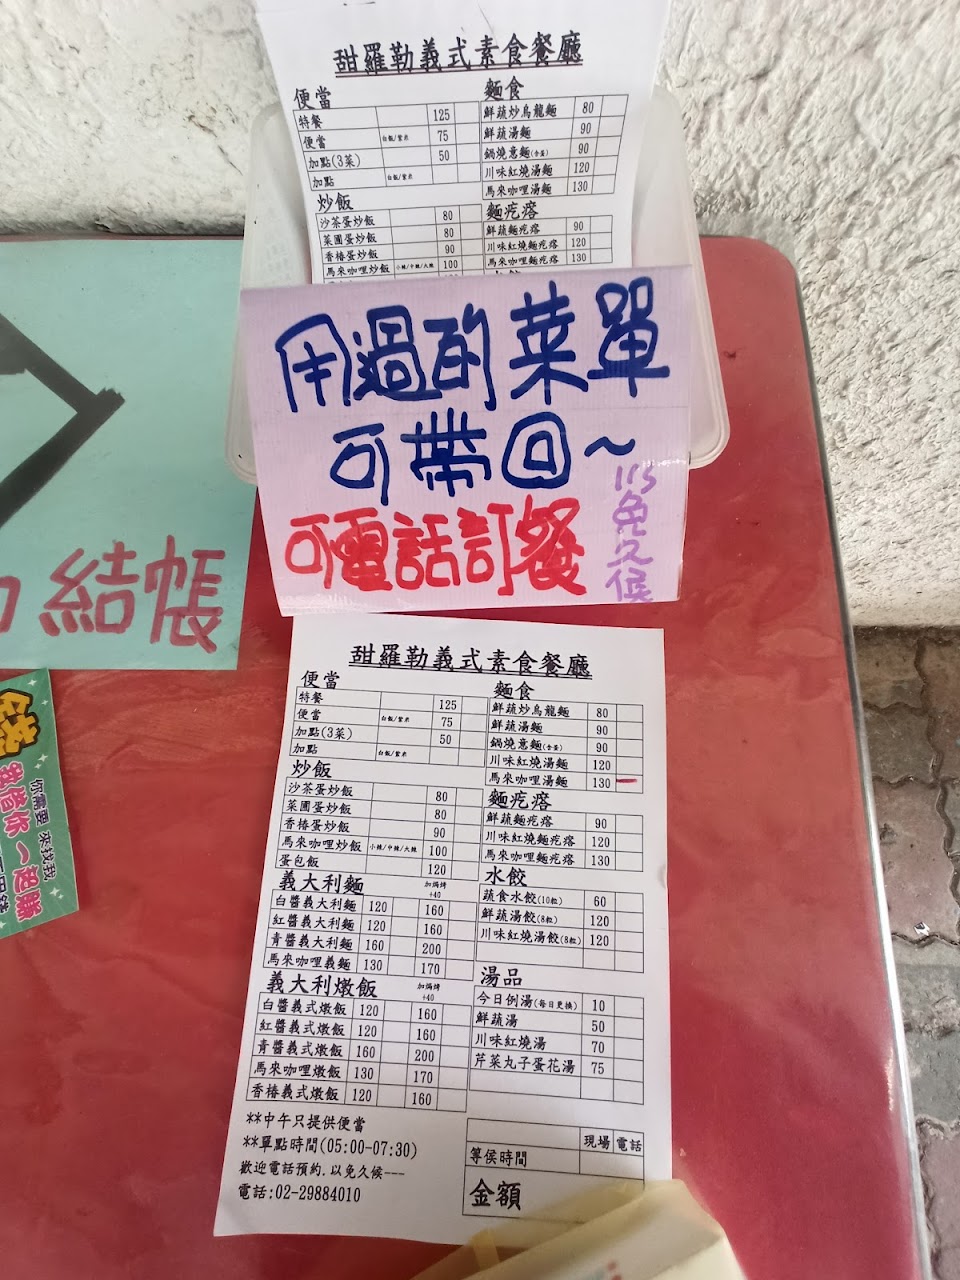 甜羅勒義式素食餐廳
便當
特餐 125
便當 白飯/紫米 75
加點(3菜) 50
加點 白飯/紫米
炒飯
沙茶蛋炒飯 80
菜圃蛋炒飯 80
香椿蛋炒飯 90
馬來咖哩炒飯 小辣/中辣/大辣 100
麵食
鮮蔬炒烏龍麵 80
鮮蔬湯麵 90
鍋燒意麵(含蛋) 90
川味紅燒湯麵 120
馬來咖哩湯麵 130
麵疙瘩
鮮蔬麵疙瘩 90
川味紅燒麵疙瘩 120
馬來咖哩麵疙瘩 130
用過的菜單
可帶回~
可電話訂餐
以免久候
結帳
你需要 來找我
甜羅勒義式素食餐廳
便當
特餐 125
便當 白飯/紫米 75
加點(3菜) 50
加點 白飯/紫米
炒飯
沙茶蛋炒飯 80
菜圃蛋炒飯 80
香椿蛋炒飯 90
馬來咖哩炒飯 小辣/中辣/大辣 100
蛋包飯 120
義大利麵 加焗烤 +40
白醬義大利麵 120 160
紅醬義大利麵 120 160
青醬義大利麵 160 200
馬來咖哩義麵 130 170
義大利燉飯 加焗烤 +40
白醬義式燉飯 120 160
紅醬義式燉飯 120 160
青醬義式燉飯 160 200
馬來咖哩燉飯 130 170
香椿義式燉飯 120 160
**中午只提供便當
**單點時間(05:00-07:30)
歡迎電話預約.以免久候---
電話:02-29884010
麵食
鮮蔬炒烏龍麵 80
鮮蔬湯麵 90
鍋燒意麵(含蛋) 90
川味紅燒湯麵 120
馬來咖哩湯麵 130
麵疙瘩
鮮蔬麵疙瘩 90
川味紅燒麵疙瘩 120
馬來咖哩麵疙瘩 130
水餃
蔬食水餃(10粒) 60
鮮蔬湯餃(8粒) 120
川味紅燒湯餃(8粒) 120
湯品
今日例湯(每日更換) 10
鮮蔬湯 50
川味紅燒湯 70
芹菜丸子蛋花湯 75
現場 電話
等侯時間
金額